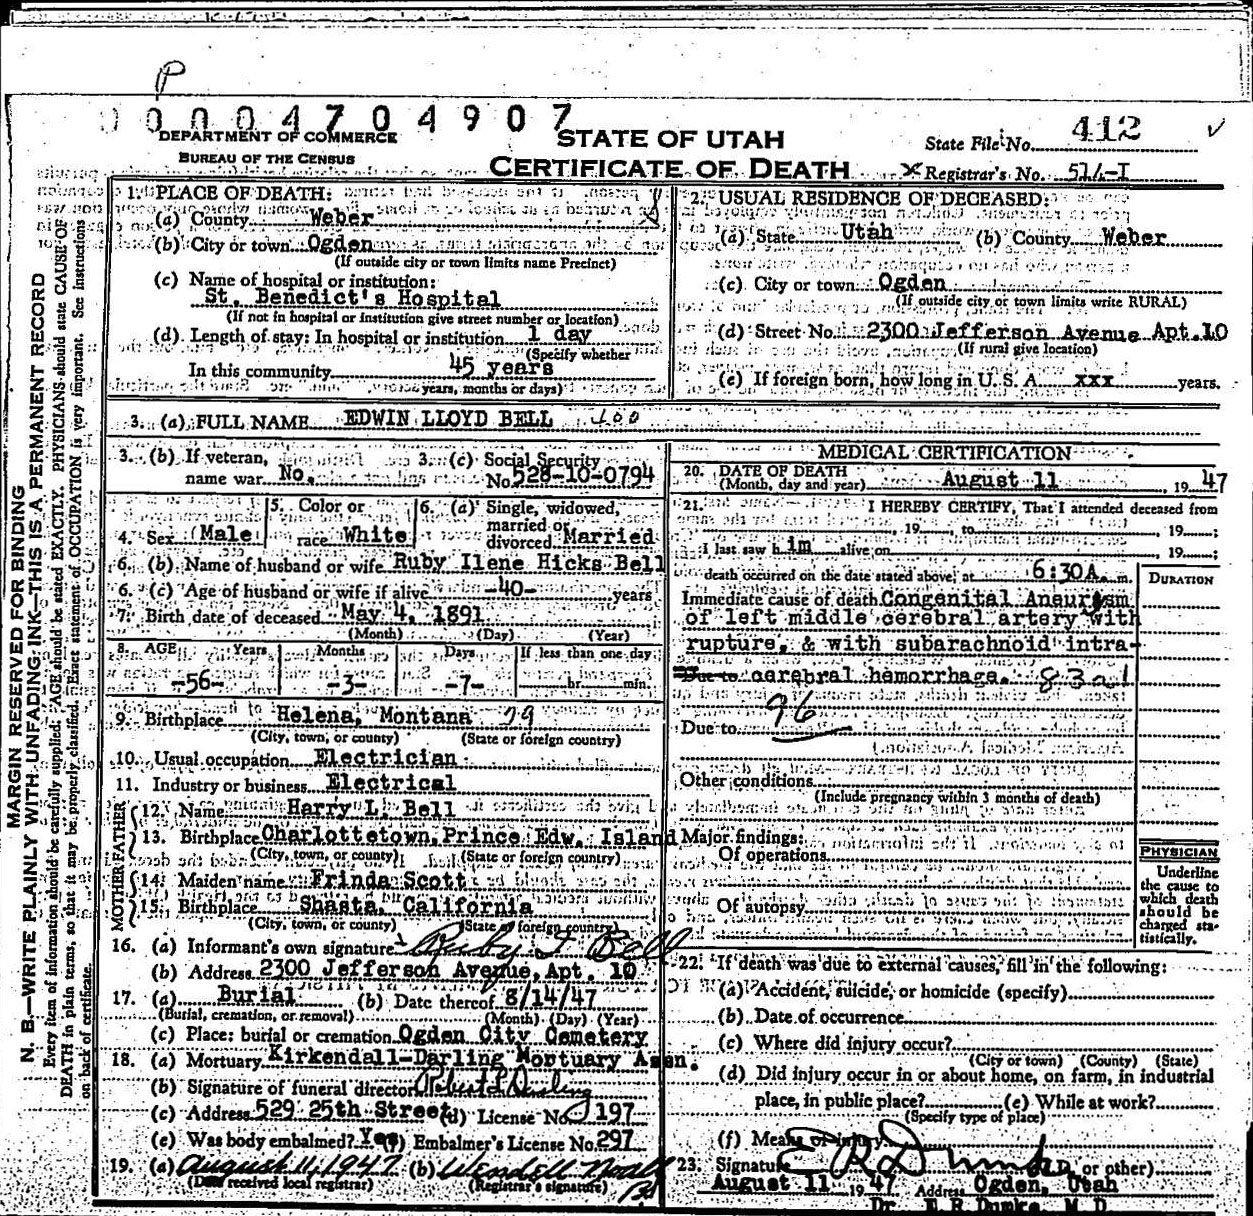 P
00004704907
DEPARTMENT OF COMMERCE
BUREAU OF THE CENSUS
STATE OF UTAH
CERTIFICATE OF DEATH
State File No. 412
X Registrar's No.
MARGIN RESERVED FOR BINDING
N. B.—WRITE PLAINLY WITH UNFADING INK—THIS IS A PERMANENT RECORD
Every item of information should be carefully supplied. AGE should be stated EXACTLY. PHYSICIANS should state CAUSE OF
DEATH in plain terms, so that it may be properly classified. Exact statement of OCCUPATION is very important. See instructions
on back of certificate.
1. PLACE OF DEATH:
(a) County Weber
(b) City or town Ogden
(If outside city or town limits name Precinct)
(c) Name of hospital or institution:
St. Benedict's Hospital
(If not in hospital or institution give street number or location)
(d) Length of stay: In hospital or institution 1 day
(Specify whether
In this community 45 years
years, months or days)
2. USUAL RESIDENCE OF DECEASED:
(a) State Utah (b) County Weber
(c) City or town Ogden
(If outside city or town limits write RURAL)
(d) Street No. 2300 Jefferson Avenue Apt.10
(If rural give location)
(e) If foreign born, how long in U. S. A. xxx years.
3. (a) FULL NAME EDWIN LLOYD BELL 400
3. (b) If veteran, name war No.
3. (c) Social Security No. 528-10-0794
4. Sex Male
5. Color or race White
6. (a) Single, widowed, married or divorced Married
6. (b) Name of husband or wife Ruby Ilene Hicks Bell
6. (c) Age of husband or wife if alive -40- years
7. Birth date of deceased May 4, 1891
(Month) (Day) (Year)
8. AGE Years Months Days If less than one day
-56- -3- -7- hr. min.
9. Birthplace Helena, Montana 79
(City, town, or county) (State or foreign country)
10. Usual occupation Electrician
11. Industry or business Electrical
FATHER
12. Name Harry L. Bell
13. Birthplace Charlottetown, Prince Edw. Island
(City, town, or county) (State or foreign country)
MOTHER
14. Maiden name Frinda Scott
15. Birthplace Shasta, California
(City, town, or county) (State or foreign country)
16. (a) Informant's own signature Ruby I Bell
(b) Address 2300 Jefferson Avenue, Apt. 10
17. (a) Burial (b) Date thereof 8/14/47
(Burial, cremation, or removal) (Month) (Day) (Year)
(c) Place: burial or cremation Ogden City Cemetery
18. (a) Mortuary Kirkendall-Darling Mortuary Assn.
(b) Signature of funeral director
(c) Address 529 25th Street (d) License No. 197
(e) Was body embalmed? Yes (f) Embalmer's License No. 297
19. (a) August 11, 1947 (b) Wendell
(Date received local registrar) (Registrar's signature)
MEDICAL CERTIFICATION
20. DATE OF DEATH
(Month, day and year) August 11, 1947
21. I HEREBY CERTIFY, That I attended deceased from
, 19 to , 19 ;
I last saw him alive on , 19 ;
death occurred on the date stated above, at 6:30A. m.
DURATION
Immediate cause of death Congenital Aneurysm
of left middle cerebral artery with
rupture, & with subarachnoid intra-
Due to cerebral hemorrhage. 83a1
96
Due to
Other conditions
(Include pregnancy within 3 months of death)
Major findings:
Of operations
Of autopsy
PHYSICIAN
Underline
the cause to
which death
should be
charged sta-
tistically.
22. If death was due to external causes, fill in the following:
(a) Accident, suicide, or homicide (specify)
(b) Date of occurrence
(c) Where did injury occur?
(City or town) (County) (State)
(d) Did injury occur in or about home, on farm, in industrial
place, in public place? (e) While at work?
(Specify type of place)
(f) Means of injury
23. Signature E R Dumke (M.D. or other)
August 11 1947 Address Ogden, Utah
Dr. E.R. Dumke, M.D.